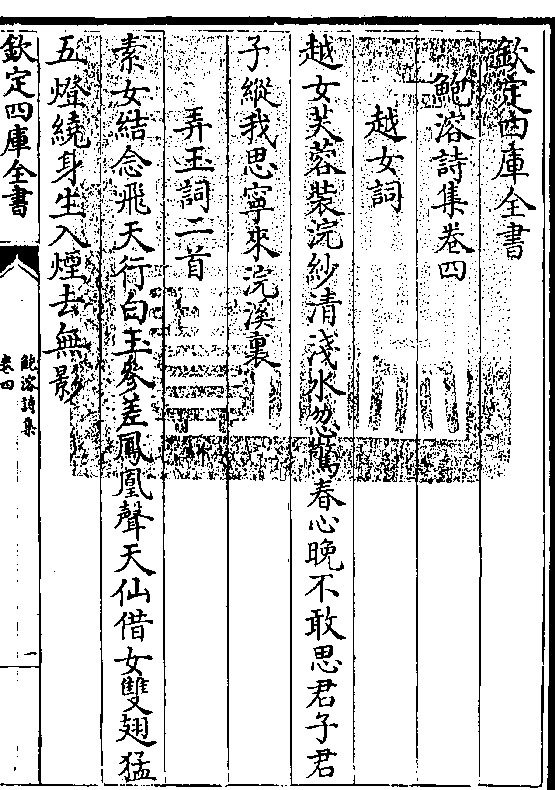 欽定四庫全書
鮑溶詩集卷四
越女詞
越女芙蓉裝浣紗清淺水忽驚春心晚不敢思君子君
子縱我思寧來浣溪裏
弄玉詞二首
素女結念飛天行白玉參差鳳凰聲天仙借女雙翅猛
五燈繞身生入煙去無影
欽定四庫全書
鮑溶詩集
卷四
一